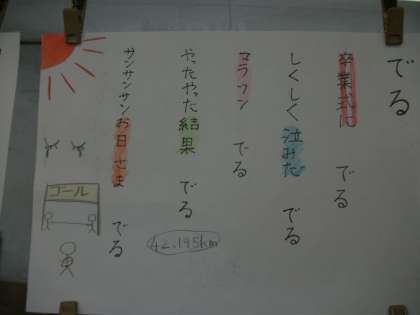 でる
卒業式に でる
しくしく泣みだ でる
マラソン でる
やったやった結果 でる
サンサンサンお日さま でる
42.195km
ゴール